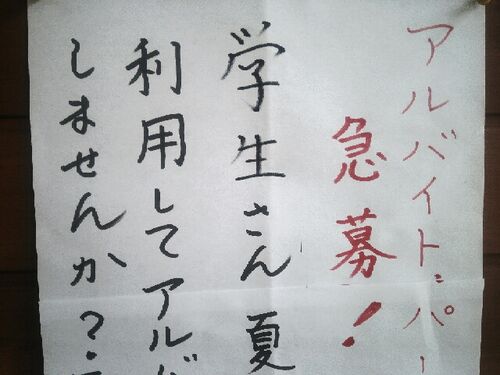 アルバイト・パー
急募!
学生さん夏
利用してアルバ
しませんか?